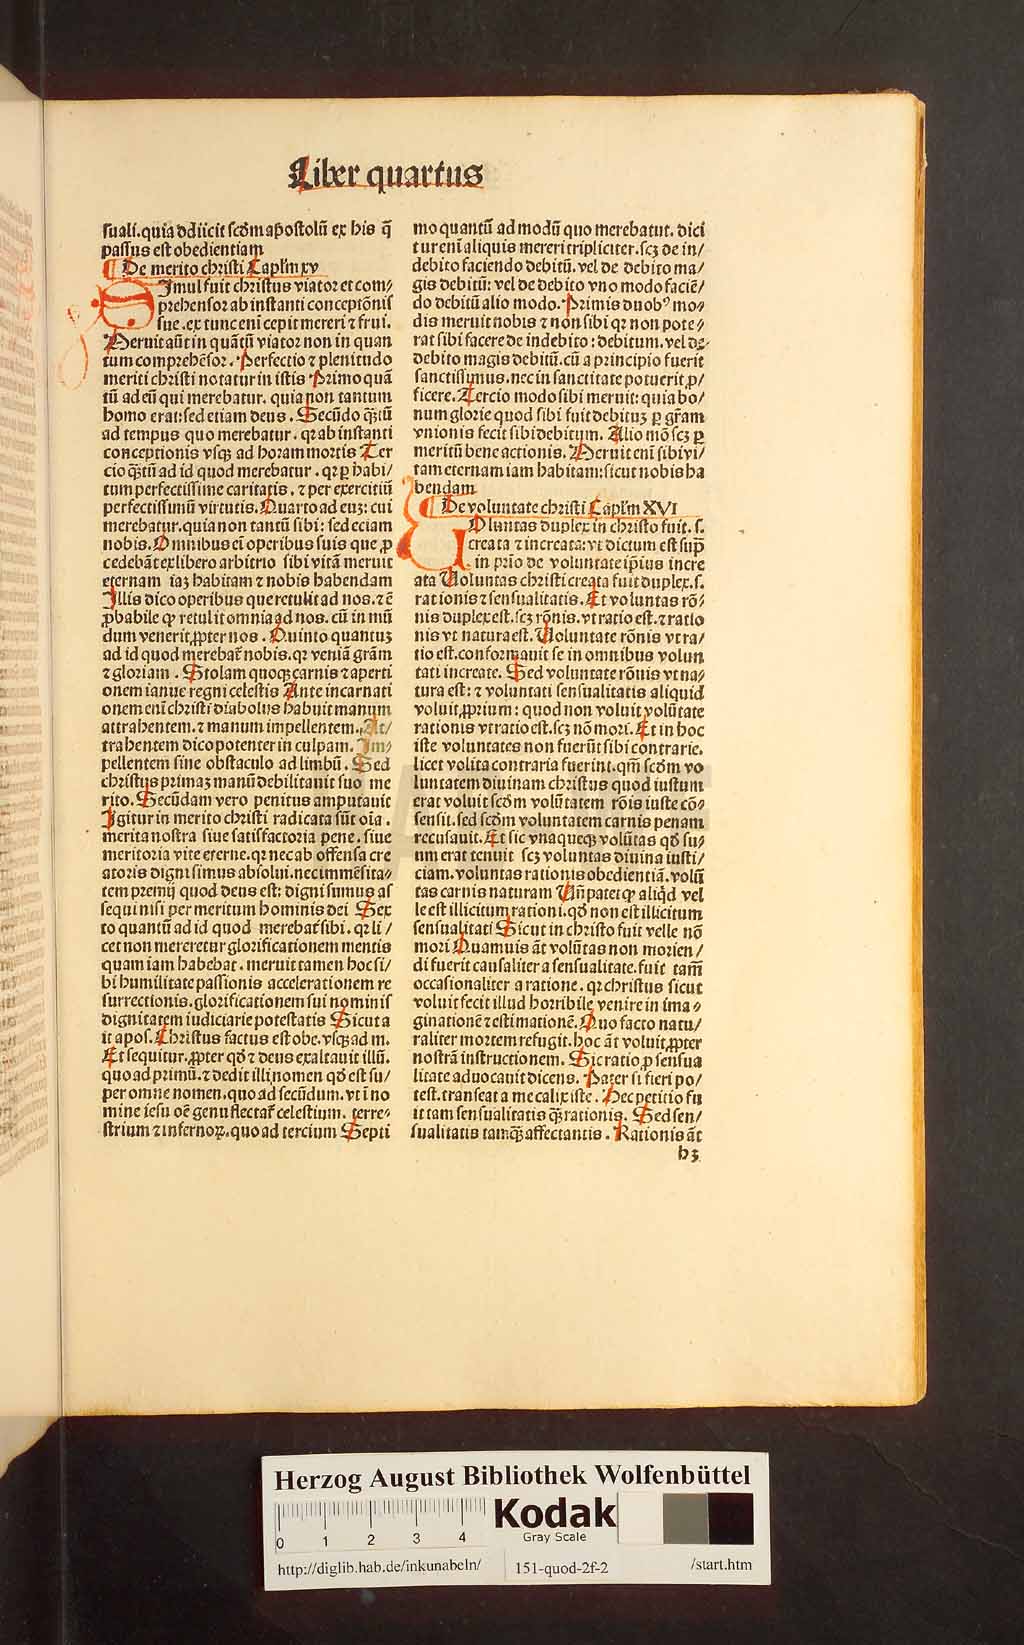 Liber quartus
suali.quia ddiicit scd̄m apostolū ex his q̄
passus est obedientiam
¶ De merito christi Capl'm xv
Simul fuit christus viator et com/
prehensor ab instanti conceptōnis
sue .ex tunc eni cepit mereri ⁊ frui.
Meruit aūt in quātū viator non in quan
tum comprehēsor. Perfectio ⁊ plenitudo
meriti christi notatur in istis Primo quā
tū ad eū qui merebatur. quia non tantum
homo erat:sed etiam deus. Secūdo q̄ꝫtū
ad tempus quo merebatur. qꝛ ab instanti
conceptionis vsqꝫ ad horam mortis Ter
cio q̄ꝫtū ad id quod merebatur. qꝛ ꝑ habi/
tum perfectissime caritatis. ⁊ per exercitiū
perfectissimū virtutis. Quarto ad euꝫ: cui
merebatur. quia non tantū sibi: sed eciam
nobis. Omnibus eī operibus suis que ꝓ
cedebāt ex libero arbitrio sibi vitā meruit
eternam iaꝫ habitam ⁊ nobis habendam
Illis dico operibus que retulit ad nos. ⁊ ē
ꝓbabile ꝙ retulit omnia ad nos. cū in mū
dum venerit ꝓpter nos. Quinto quantuꝫ
ad id quod merebat̄ nobis. qꝛ veniā grām
⁊ gloriam. Stolam quoqꝫ carnis ⁊ aperti
onem ianue regni celestis Ante incarnati
onem eni christi diabolus habuit manum
attrahentem. ⁊ manum impellentem. At/
trahentem dico potenter in culpam. Im/
pellentem sine obstaculo ad limbū. Sed
christus primaꝫ manū debilitauit suo me
rito. Secūdam vero penitus amputauit
Igitur in merito christi radicata sūt oīa.
merita nostra siue satisfactoria pene. siue
meritoria vite eterne. qꝛ nec ab offensa cre
atoris digni simus absolui. nec immēsita/
tem premij quod deus est: digni sumus as
sequi nisi per meritum hominis dei Sex
to quantū ad id quod merebat̄ sibi. qꝛ li/
cet non mereretur glorificationem mentis
quam iam habebat. meruit tamen hoc si/
bi humilitate passionis accelerationem re
surrectionis. glorificationem sui nominis
dignitatem iudiciarie potestatis Sicut a
it apos. Christus factus est obe. vsqꝫ ad m.
Et sequitur. ꝓpter qd̄ ⁊ deus exaltauit illū.
quo ad primū. ⁊ dedit illi nomen qd̄ est su/
per omne nomen. quo ad secūdum. vt ī no
mine iesu oē genu flectat̄ celestium. terre/
strium ⁊ infernoꝝ. quo ad tercium Septi
mo quantū ad modū quo merebatur. dici
tur enī aliquis mereri tripliciter. scꝫ de in/
debito faciendo debitū. vel de debito ma/
gis debitū: vel de debito vno modo faciē/
do debitū alio modo. Primis duobꝰ mo/
dis meruit nobis ⁊ non sibi qꝛ non pote/
rat sibi facere de indebito: debitum. vel de
debito magis debitū. cū a principio fuerit
sanctissimus. nec in sanctitate potuerit ꝓ/
ficere. Tercio modo sibi meruit: quia bo/
num glorie quod sibi fuit debituꝫ ꝑ grām
vnionis fecit sibi debitum. Alio mō scꝫ ꝑ
meritū bene actionis. Meruit eni sibi vi/
tam eternam iam habitam: sicut nobis ha
bendam
¶ De voluntate christi Capl'm XVI
Voluntas duplex in christo fuit. s.
creata ⁊ increata: vt dictum est suꝑ
in prīo de voluntate ipsius incre
ata Voluntas christi creata fuit duplex. s.
rationis ⁊ sensualitatis. Et voluntas rō/
nis duplex est. scꝫ rōnis. vt ratio est. ⁊ ratio
nis vt natura est. Voluntate rōnis vt ra/
tio est. conformauit se in omnibus volun
tati increate. Sed voluntate rōnis vt na/
tura est: ⁊ voluntati sensualitatis aliquid
voluit ꝓprium: quod non voluit volūtate
rationis vt ratio est. scꝫ nō mori. Et in hoc
iste voluntates non fuerūt sibi contrarie.
licet volita contraria fuerint. qm̄ scd̄m vo
luntatem diuinam christus quod iustum
erat voluit scd̄m volūtatem rōis iuste cō/
sensit. sed scd̄m voluntatem carnis penam
recusauit. Et sic vnaqueqꝫ volūtas qd̄ su/
um erat tenuit scꝫ voluntas diuina iusti/
ciam. voluntas rationis obedientiā. volū
tas carnis naturam Vn̄ patet ꝙ aliqd̄ vel
le est illicitum rationi. qd̄ non est illicitum
sensualitati Sicut in christo fuit velle nō
mori Quamuis āt volūtas non morien/
di fuerit causaliter a sensualitate. fuit tam̄
occasionaliter a ratione. qꝛ christus sicut
voluit fecit illud horribile venire in ima/
ginationē ⁊ estimationē. Quo facto natu/
raliter mortem refugit. hoc āt voluit ꝓpter
nostrā instructionem. Sic ratio ꝓ sensua
litate aduocauit dicens. Pater si fieri po/
test. transeat a me calix iste. Hec petitio fu
it tam sensualitatis q̄ꝫ rationis. Sed sen/
sualitatis tamq̄ꝫ affectantis. Rationis āt
h3
Herzog August Bibliothek Wolfenbüttel
0 1 2 3 4
Kodak
Gray Scale
http://diglib.hab.de/inkunabeln/ 151-quod-2f-2 /start.htm